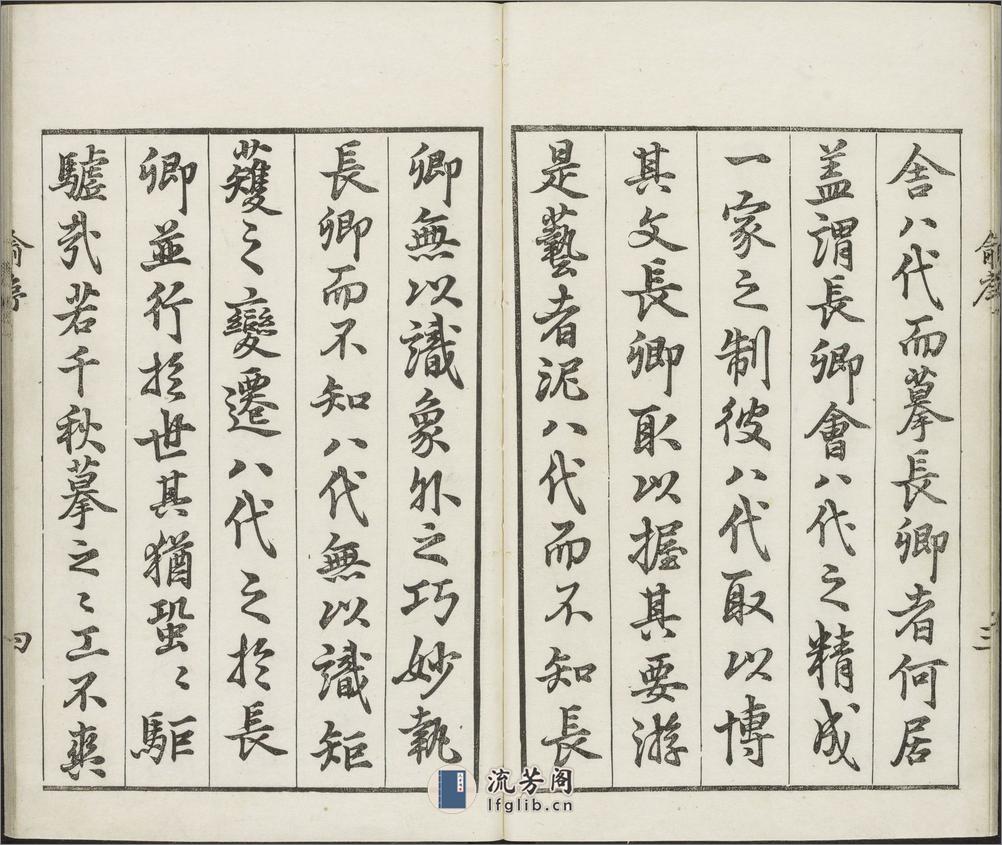 舍八代而摹長卿者何居
盖謂長卿會八代之精成
一家之制彼八代取以博
其文長卿取以握其要游
是藝者泥八代而不知長
卿無以識象外之巧妙執
長卿而不知八代無以識矩
蒦之變遷八代之於長
卿並行於世其猶蛩〻駏
驉哉若千秋摹之〻工不爽
三
四
流芳阁
lfglib.cn